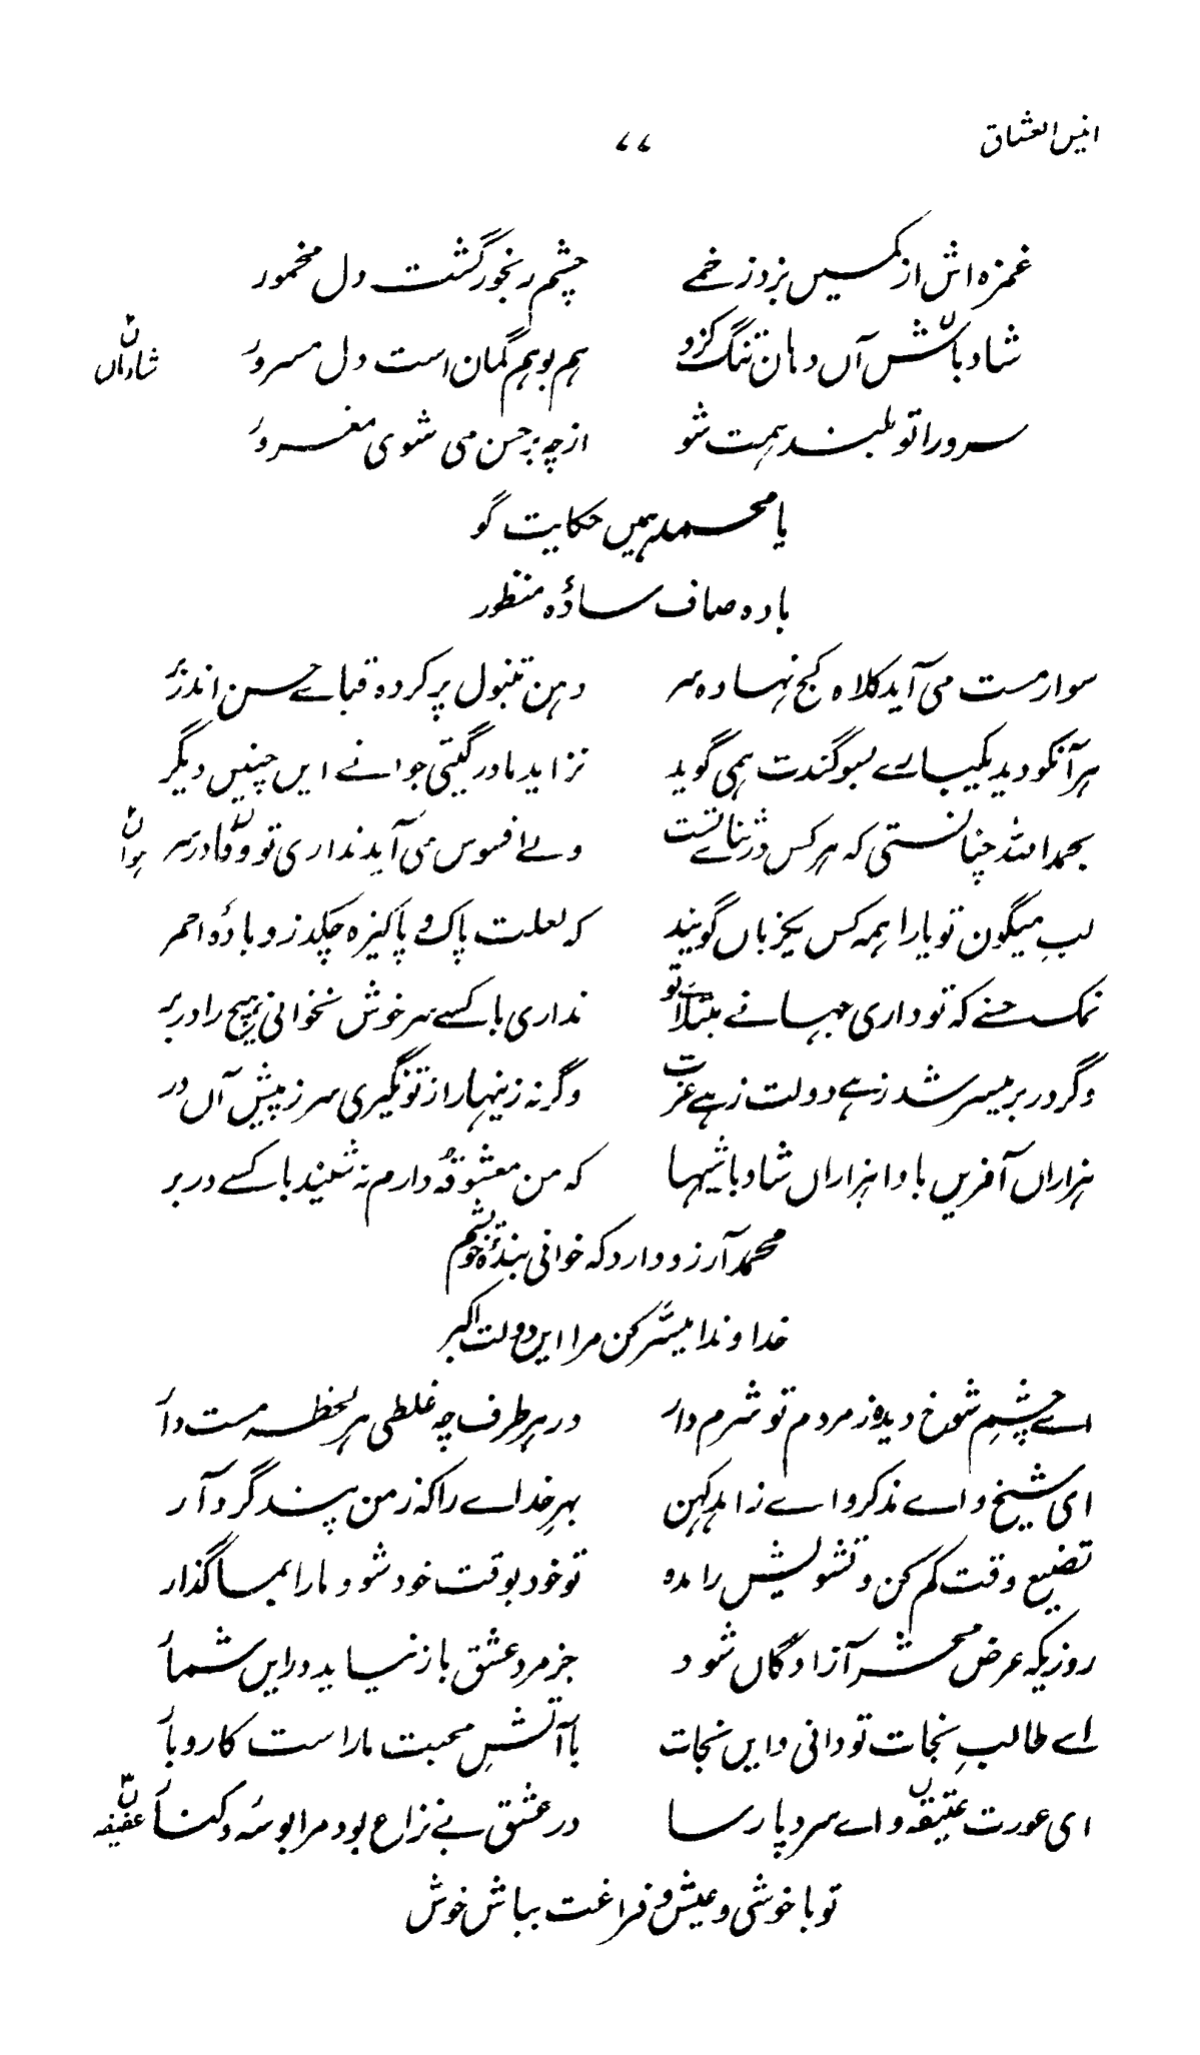 انیس العشاق ۷۷
غمزہ اش از کمیں بزد زخمے چشم رنجور گشت دل مخمور
شادباش آں دہان تنگ کزو ہم بوہم گمان است دل مسرور شادماں ن
سرو را تو بلند ہمت شو از چہ بر حسن می شوی مغرور
یا محمد ہمیں حکایت گو
بادہ صاف سادۂ منظور
سوار مست می آید کلاہ کج نہادہ سر دہن تنبول پر کردہ قبائے حسن اندر بر
ہر آنکو دید یکبارے بسوگندت ہمی گوید نزاید مادر گیتی جوانے ایں چنیں دیگر
بحمد اللہ چنانستی کہ ہر کس در ثنائے تست ولے افسوس می آید نداری تو وفا در سر ہوا ن
لبِ میگون تو یارا ہمہ کس یکزباں گویند کہ لعلت پاک و پاکیزہ چکد زو بادۂ احمر
نمک حسنے کہ تو داری جہانے مبتلائے تو نداری با کسے سر خوش نخوانی ہیچ را در بر
وگر در بر میسر شد زہے دولت زہے عزت وگرنہ زینہار از تو نگیری سر ز پیش آں در
ہزاراں آفریں بادا ہزاراں شادباشیہا کہ من معشوقۂ دارم نہ شیند با کسے در بر
محمد آرزو دارد کہ خوانی بندۂ خویشم
خداوندا میسّر کن مرا ایں دولت اکبر
اے چشمِ شوخ دیدہ ز مردم تو شرم دار در ہر طرف چہ غلطی ہر لحظہ مست دار
ای شیخ و اے مذکر و اے زاہد کہن بہرِ خدائے را کہ ز من پند گرد آر
تضیع وقت کم کن و تشویش را مدہ تو خود بوقت خود شو و مارا بما گذار
روزیکہ عرض محشر آزادگاں شود جز مرد عشق باز نیاید در ایں شمار
اے طالبِ نجات تو دانی و ایں نجات با آتشِ محبت ما راست کاروبار
ای عورت عتیقہ و اے سرد پارسا در عشق بے نزاع بود مرا بوسہ و کنار عفیفہ ن
تو با خوشی و عیش و فراغت بباش خوش